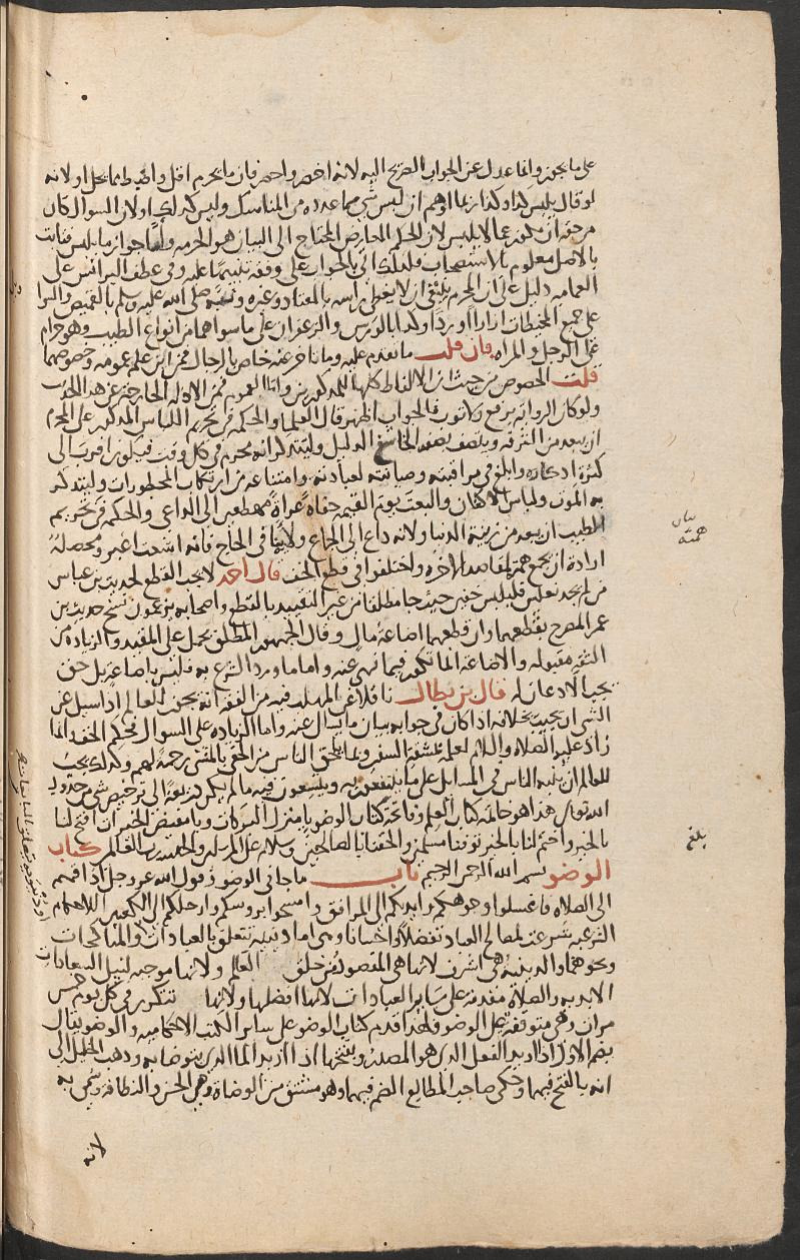 على ما يجوز وانما عدل عن الجواب الصريح اليه لانه اخصر واحصر فان ما يحرم اقل واضبط مما يحل او لانه
لو قال يلبس كذا وكذا ربما اوهم ان لبس شي مما عدده من المناسك وليس كذلك او لان السوال كان
من حقه ان يكون عما لا يلبس لان الحكم العارض المحتاج الى البيان هو الحرمه واما جواز ما يلبس فثابت
بالاصل معلوم بالاستصحاب فلذلك اتى بالجواب على وفقه تنبيها عليه وفي عطف البرانس على
العمامه دليل على ان المحرم ينبغي ان لا يغطي راسه بالمعتاد وغيره ونبه صلى الله عليه وسلم بالقميص والسرا
على جميع المخيطات ازارا او ردا وكذا بالورس والزعفران على ما سواهما من انواع الطيب وهو حرام
على الرجل والمراه فان قلت ما تقدم عليه وما تاخر عنه خاص بالرجال فمن اين علم عمومه وخصوصهما
قلت الخصوص من حيث ان الالفاظ كلها للمذكورين واما العموم فمن الادله الخارجه عن هذا الحديث
ولو كان الروايه برفع ولا ثوب فالجواب اظهر قال العلما والحكمه في تحريم اللباس المذكور على المحرم
ان يبعد من الترفه ويتصف بصفه الخاشع الذليل وليتذكر انه محرم في كل وقت فيكون اقرب الى
كثره اذكاره وابلغ في مراقبته وصيانته لعبادته وامتناعه من ارتكاب المحظورات وليتذكر
به الموت ولباس الاكفان والبعث يوم القيمه حفاه عراه مهطعين الى الداعي والحكمه في تحريم
الطيب ان يبعد من زينه الدنيا ولانه داع الى الجماع ولانه ينافي الحاج فانه اشعث اغبر ومحصله
اراده ان يجمع همه لمقاصد الاخره واختلفوا في قطع الخف قال احمد لا يجب القطع لحديث بن عباس
من لم يجد نعلين فليلبس خفين حيث جا مطلقا من غير التقييد بالقطع واصحابه يزعمون نسخ حديث بن
عمر المصرح بقطعهما وان قطعهما اضاعه مال وقال الجمهور المطلق يحمل على المقيد والزياده من
الثقه مقبوله والاضاعه انما تكون فيما نهي عنه واما ما ورد الشرع به فليس باضاعه بل حق
يجب الاذعان له قال بن بطال ناقلا عن المهلب فيه من الفقه انه يجوز للعالم اذا سيل عن
الشي ان يجيب بخلافه اذا كان في جوابه بيان ما يسال عنه واما الزياده على السوال فحكم الخف وانما
زاد عليه الصلاه والسلام لعلمه بمشقه السفر وبما يلحق الناس من الحفي بالمشي رحمه لهم وكذلك يجب
للعالم ان ينبه الناس في المسايل على ما ينتفعون به ويتسعون فيه ما لم يكن ذريعه الى ترخيص شي من حدود
الله تعالى هذا هو خاتمه كتاب العلم وفاتحه كتاب الوضو يا منزل البركات ويا مفيض الخيرات افتح لنا
بالخير واختم لنا بالخير توفنا مسلمين والحقنا بالصالحين وسلام على المرسلين والحمد لله رب العالمين كتاب
الوضو بسم الله الرحمن الرحيم باب ما جا في الوضو وقول الله عز وجل اذا قمتم
الى الصلاه فاغسلوا وجوهكم وايديكم الى المرافق وامسحوا بروسكم وارجلكم الى الكعبين الاحكام
الشرعيه شرعت لمصالح العباد تفضلا واحسانا وهي اما دينيه تتعلق بالعبادات والمناكحات
ونحوهما والدينيه هي اشرف لانها هي المقصود من خلق العالم ولانها موجبه لنيل السعادات
الابديه والصلاه مقدمه على ساير العبادات لانها افضلها ولانها تتكرر في كل يوم خمس
مرات وهي متوقفه على الوضو فلهذا قدم كتاب الوضو على ساير الكتب الاحكاميه والوضو يقال
بضم الاول اذا اريد الفعل الذي هو المصدر وبفتحها اذا اريد الما الذي يتوضا به وذهب الخليل الى
انه بالفتح فيهما وحكى صاحب المطالع الضم فيهما وهو مشتق من الوضاة وهي الحسن والنظافه وسمي به
لانه
بيان
همته
بلغ